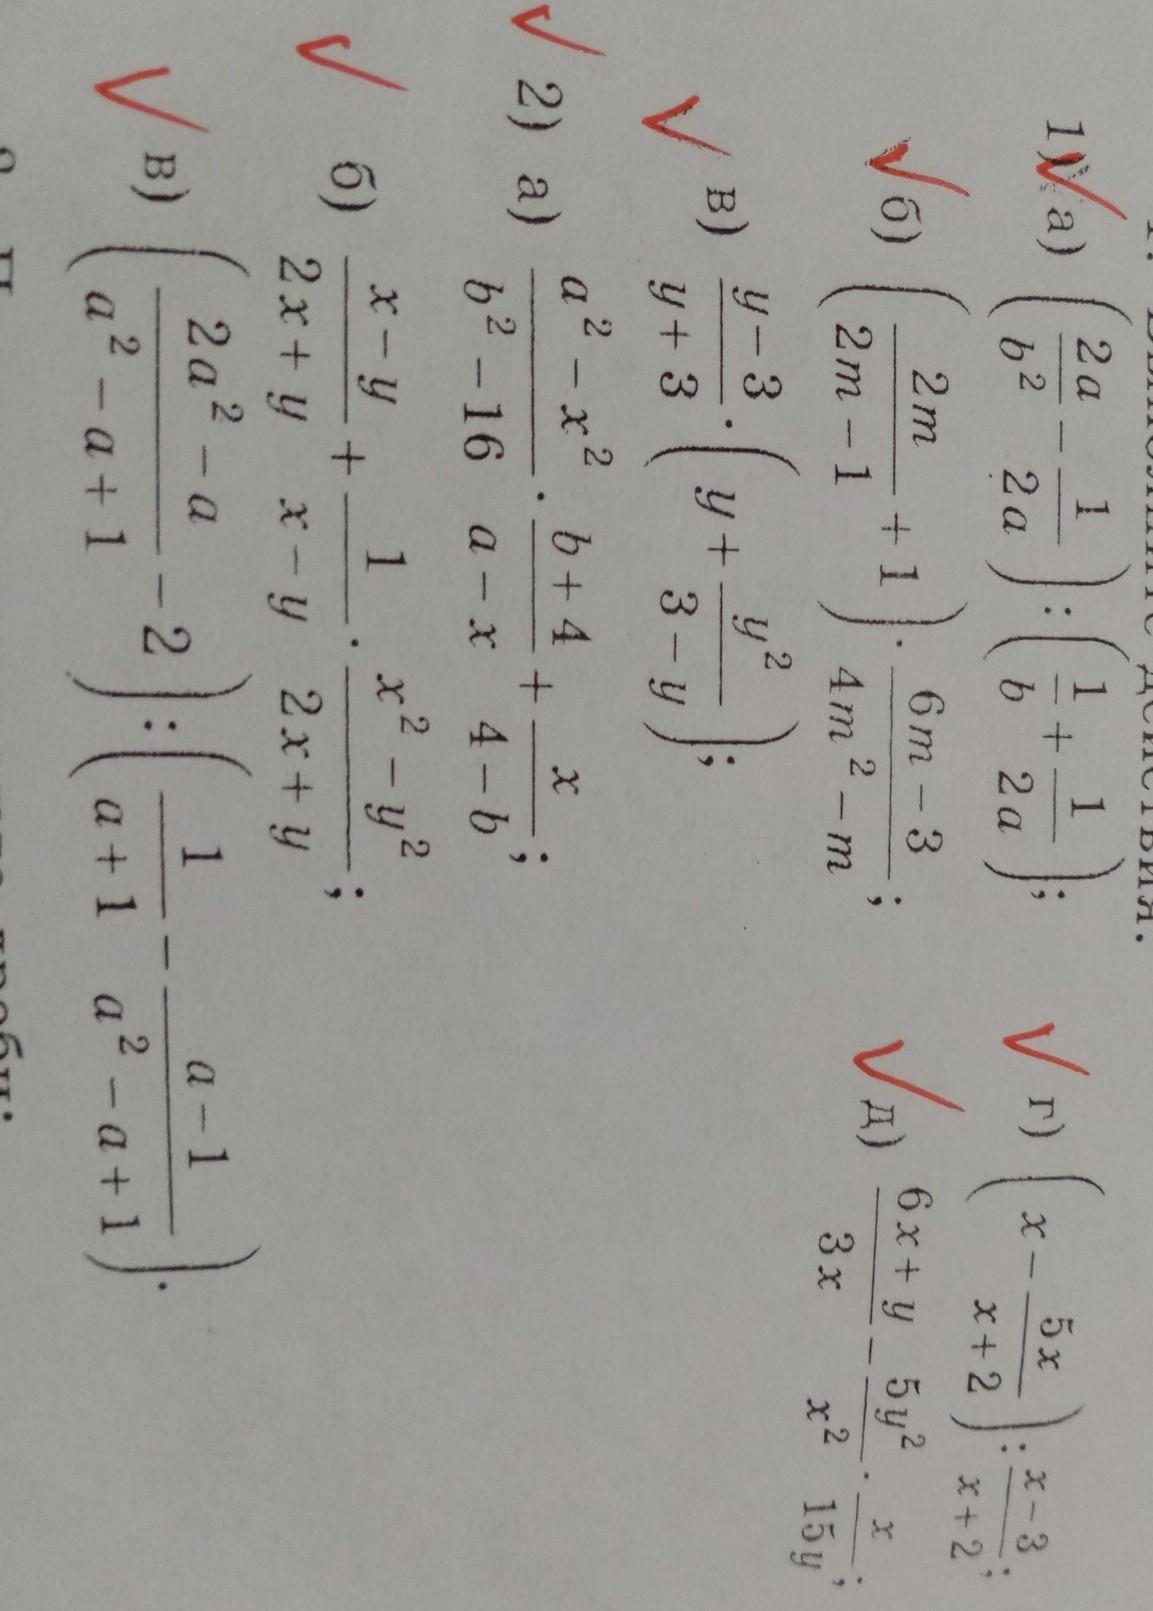 1. Выполните действия.
1) а) (2a/b² − 1/2a) : (1/b + 1/2a);
г) (x − 5x/(x+2)) : (x−3)/(x+2);
б) (2m/(2m−1) + 1) · (6m−3)/(4m²−m);
д) (6x+y)/3x − 5y²/x² · x/15y;
в) (y−3)/(y+3) · (y + y²/(3−y));
2) а) (a²−x²)/(b²−16) · (b+4)/(a−x) + x/(4−b);
б) (x−y)/(2x+y) + 1/(x−y) · (x²−y²)/(2x+y);
в) ((2a²−a)/(a²−a+1) − 2) : (1/(a+1) − (a−1)/(a²−a+1)).